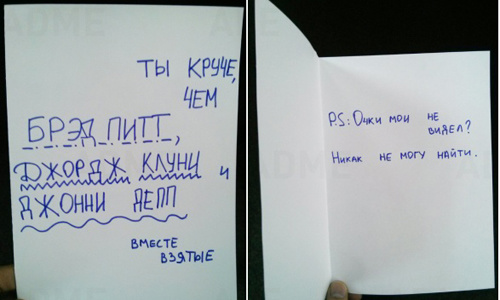 ТЫ КРУЧЕ,
ЧЕМ
БРЭД ПИТТ,
ДЖОРДЖ КЛУНИ и
ДЖОННИ ДЕПП
ВМЕСТЕ
ВЗЯТЫЕ
P.S: Очки мои не
видел?
Никак не могу найти.